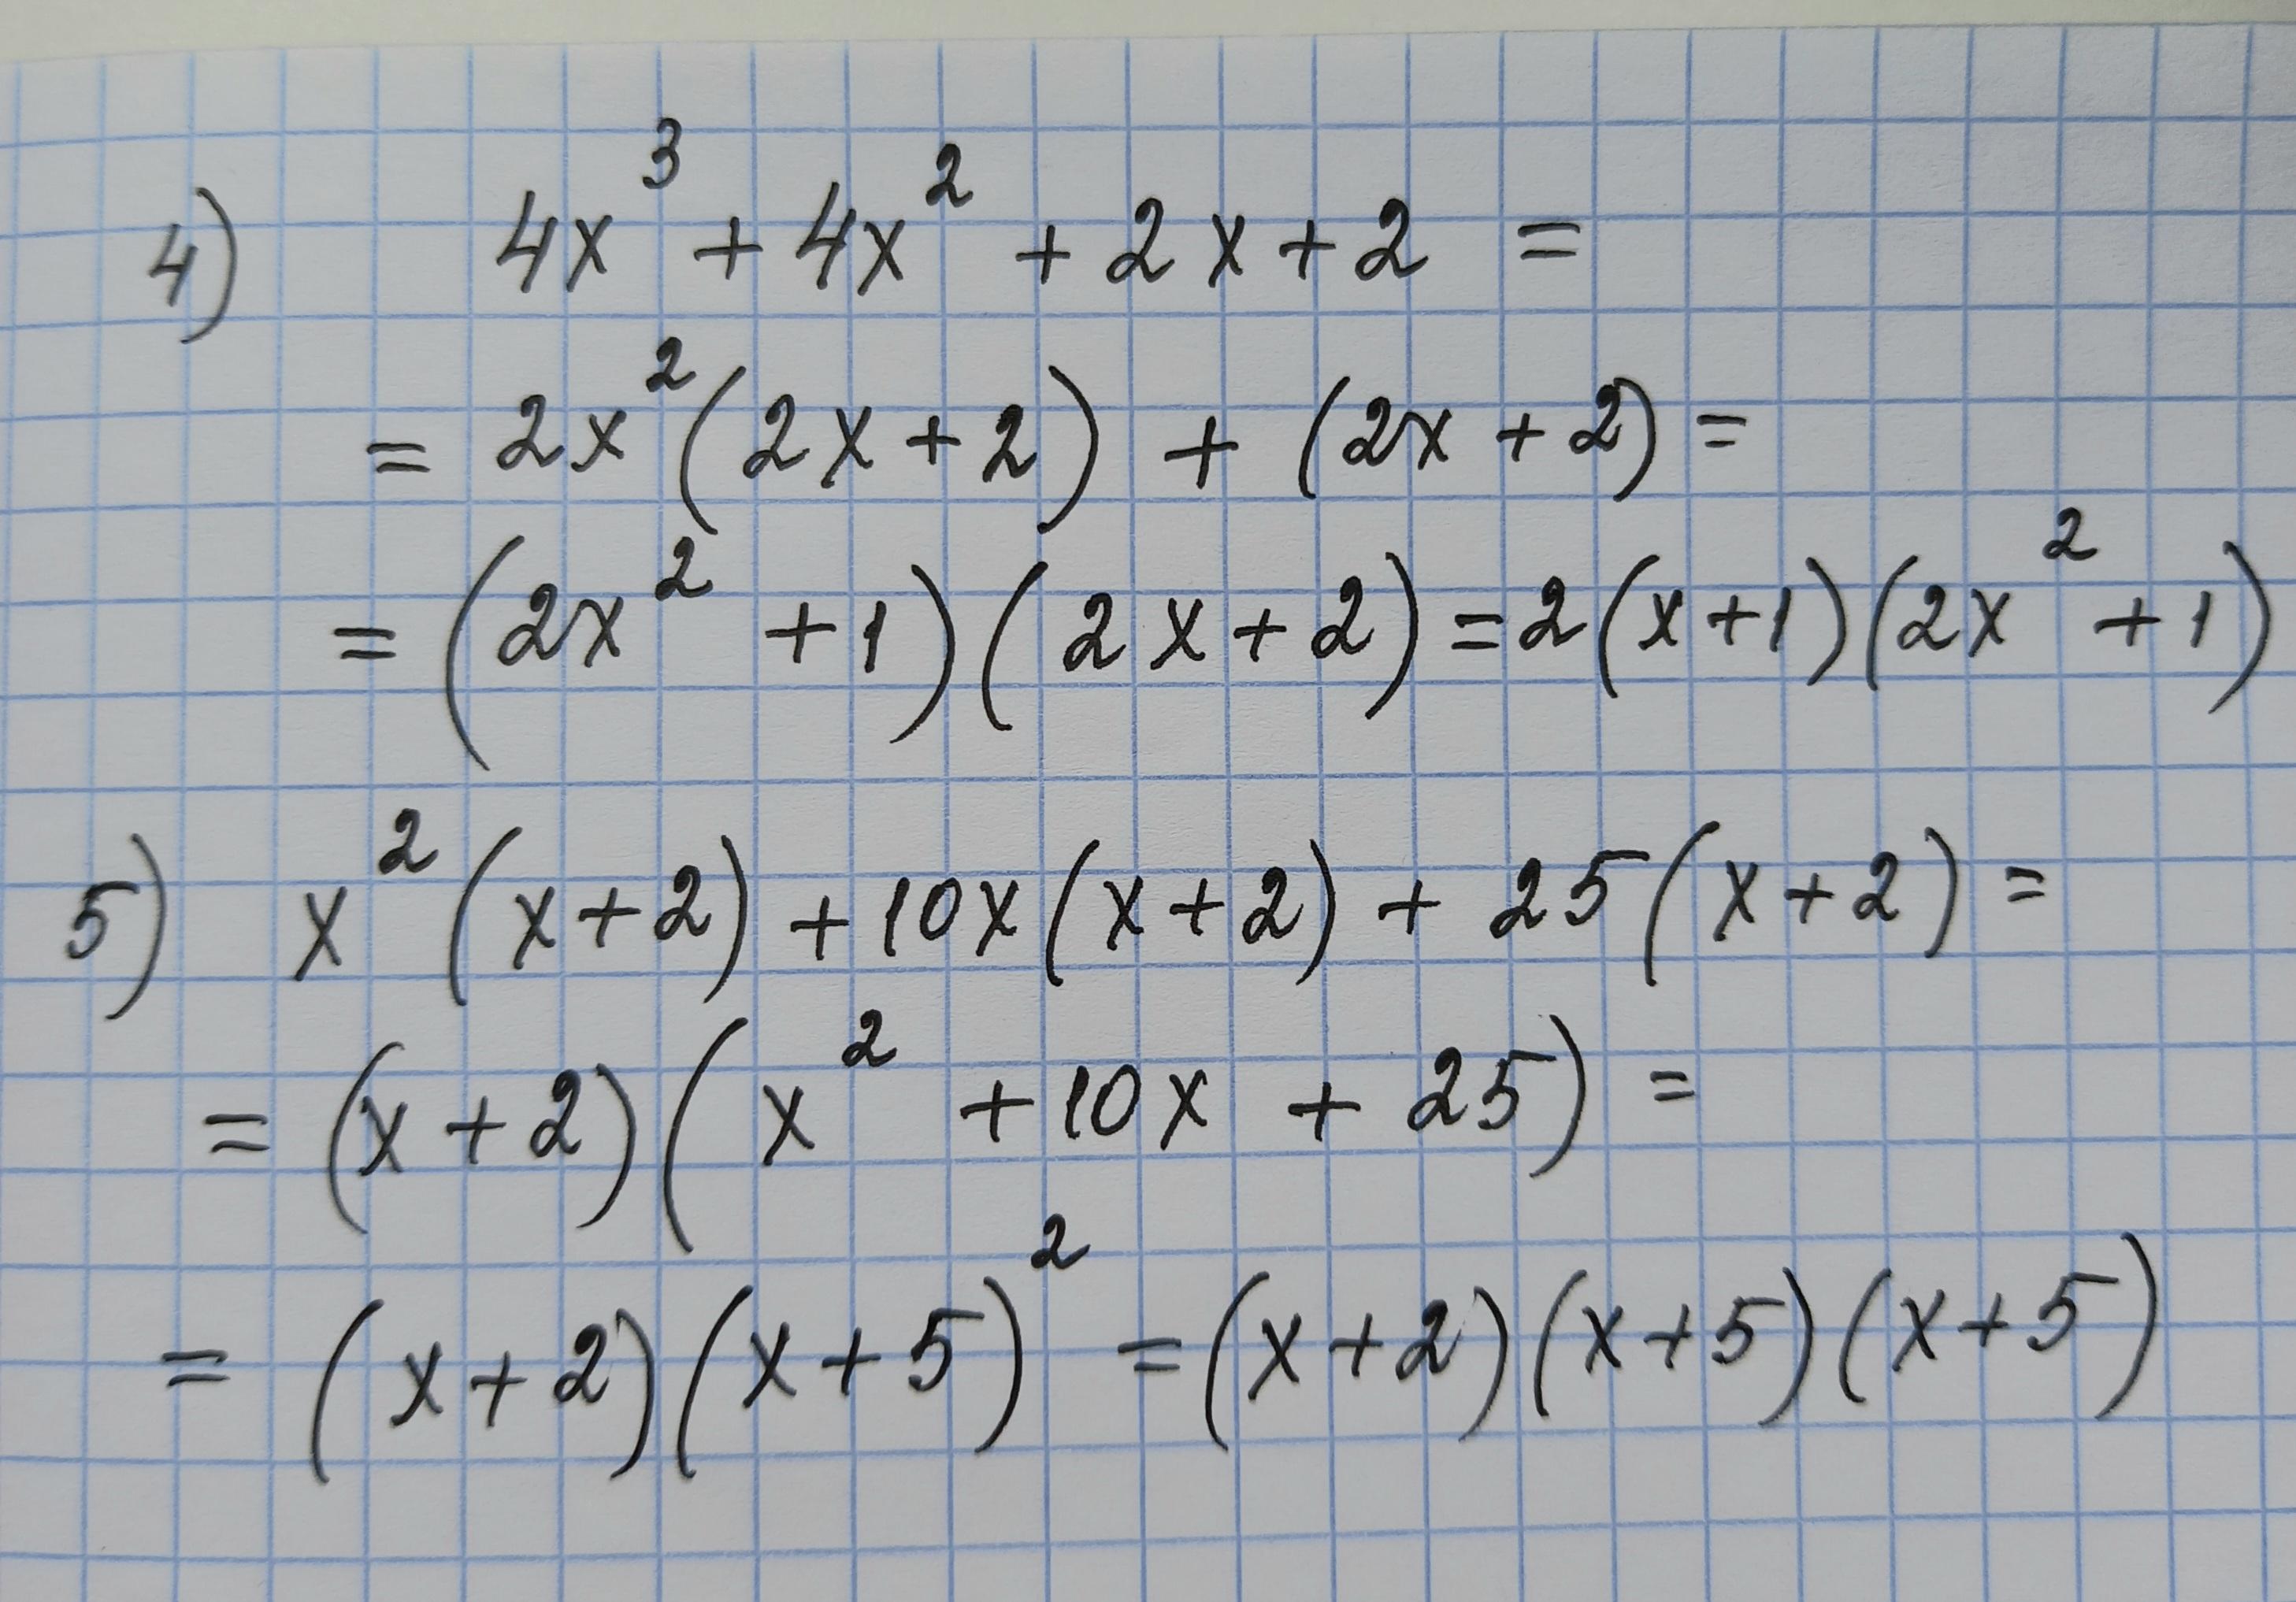 4) 4x³ + 4x² + 2x + 2 =
= 2x²(2x + 2) + (2x + 2) =
= (2x² + 1)(2x + 2) = 2(x + 1)(2x² + 1)
5) x²(x + 2) + 10x(x + 2) + 25(x + 2) =
= (x + 2)(x² + 10x + 25) =
= (x + 2)(x + 5)² = (x + 2)(x + 5)(x + 5)